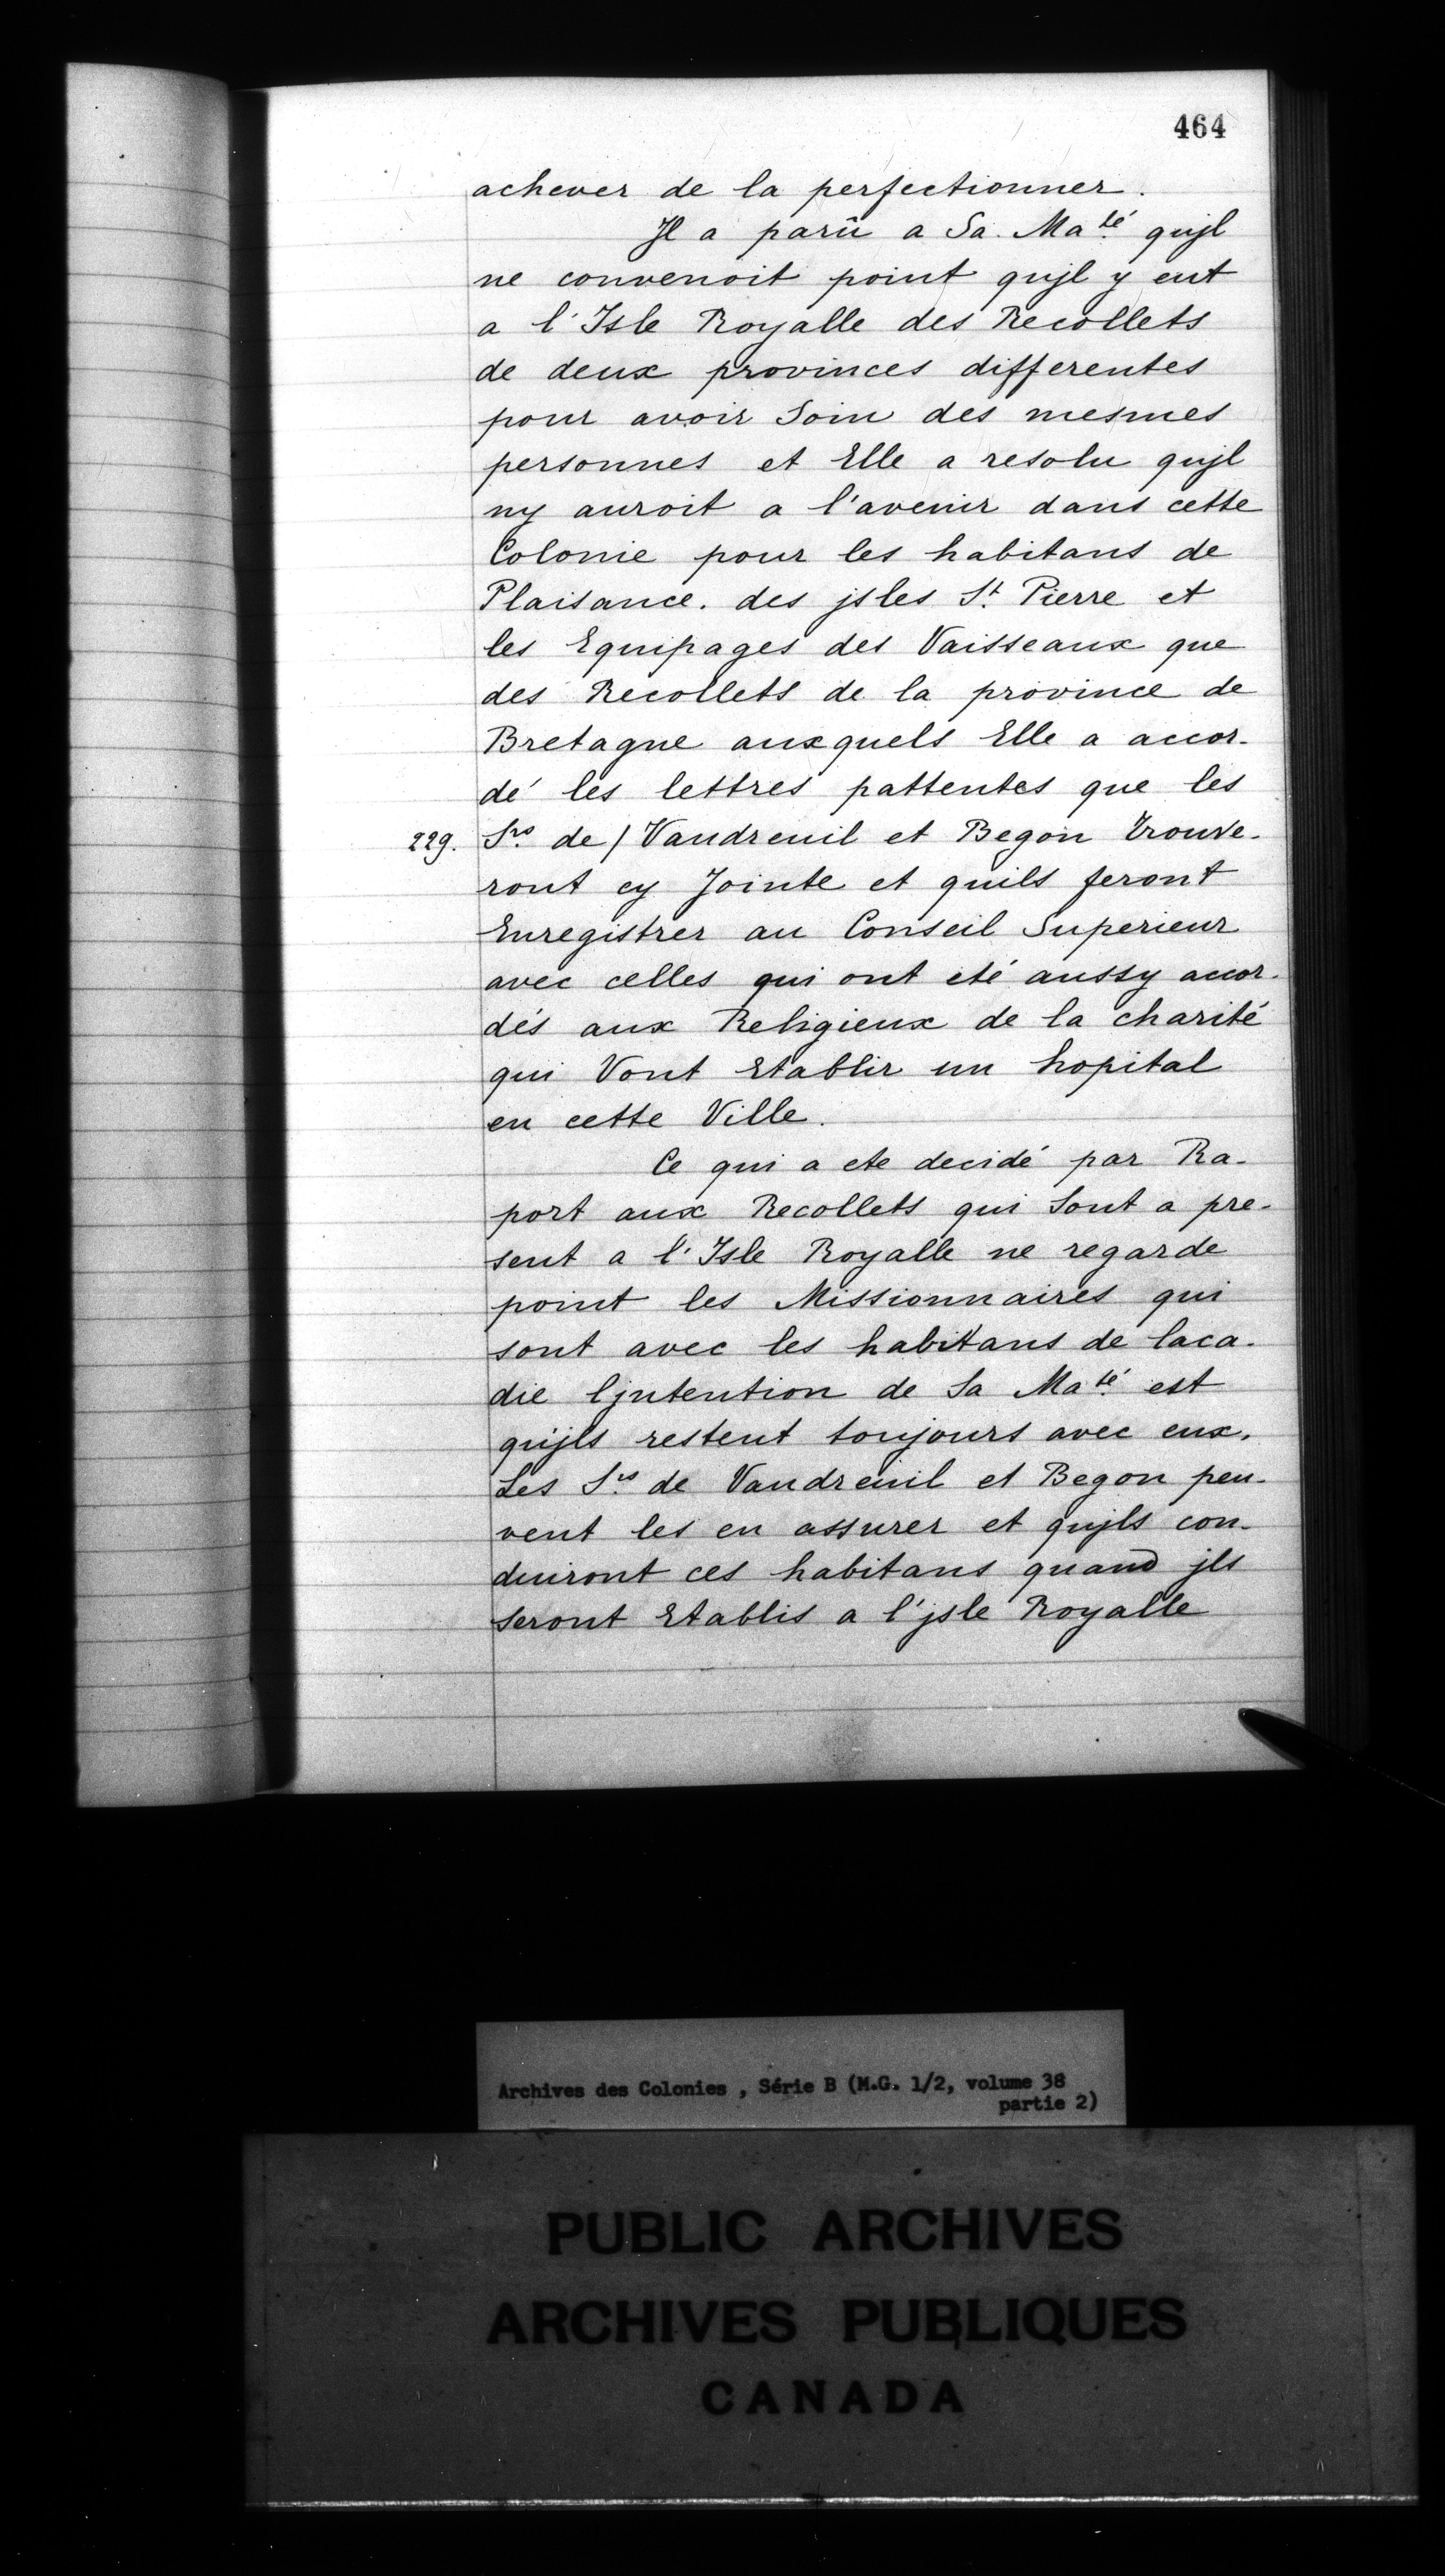 464
achever de la perfectionner.
Jl a parû a Sa. Ma.té qujl
ne convenoit point qujl y eut
a l'Isle Royalle des Recollets
de deux provinces differentes
pour avoir Soin des mesmes
personnes et Elle a resolu qujl
ny auroit a l'avenir dans cette
Colonie pour les habitans de
Plaisance. des jsles St. Pierre et
les Equipages des Vaisseaux que
des Recollets de la province de
Bretagne auxquels Elle a accor-
dé les lettres pattentes que les
229. Srs. de / Vaudreuil et Begon trouve-
ront cy Jointe et quils feront
Enregistrer au Conseil Superieur
avec celles qui ont eté aussy accor-
dés aux Religieux de la charité
qui Vont Etablir un hopital
en cette Ville.
Ce qui a ete decidé par Ra-
port aux Recollets qui Sont a pre-
sent a l'Isle Royalle ne regarde
point les Missionnaires qui
sont avec les habitans de laca-
die ljntention de Sa Ma.té est
qujls restent toujours avec eux.
Les Srs. de Vaudreuil et Begon peu-
vent les en assurer et qujls con-
duiront ces habitans quand jls
seront Etablis a l'jsle Royalle
Archives des Colonies , Série B (M.G. 1/2, volume 38
partie 2)
PUBLIC ARCHIVES
ARCHIVES PUBLIQUES
CANADA